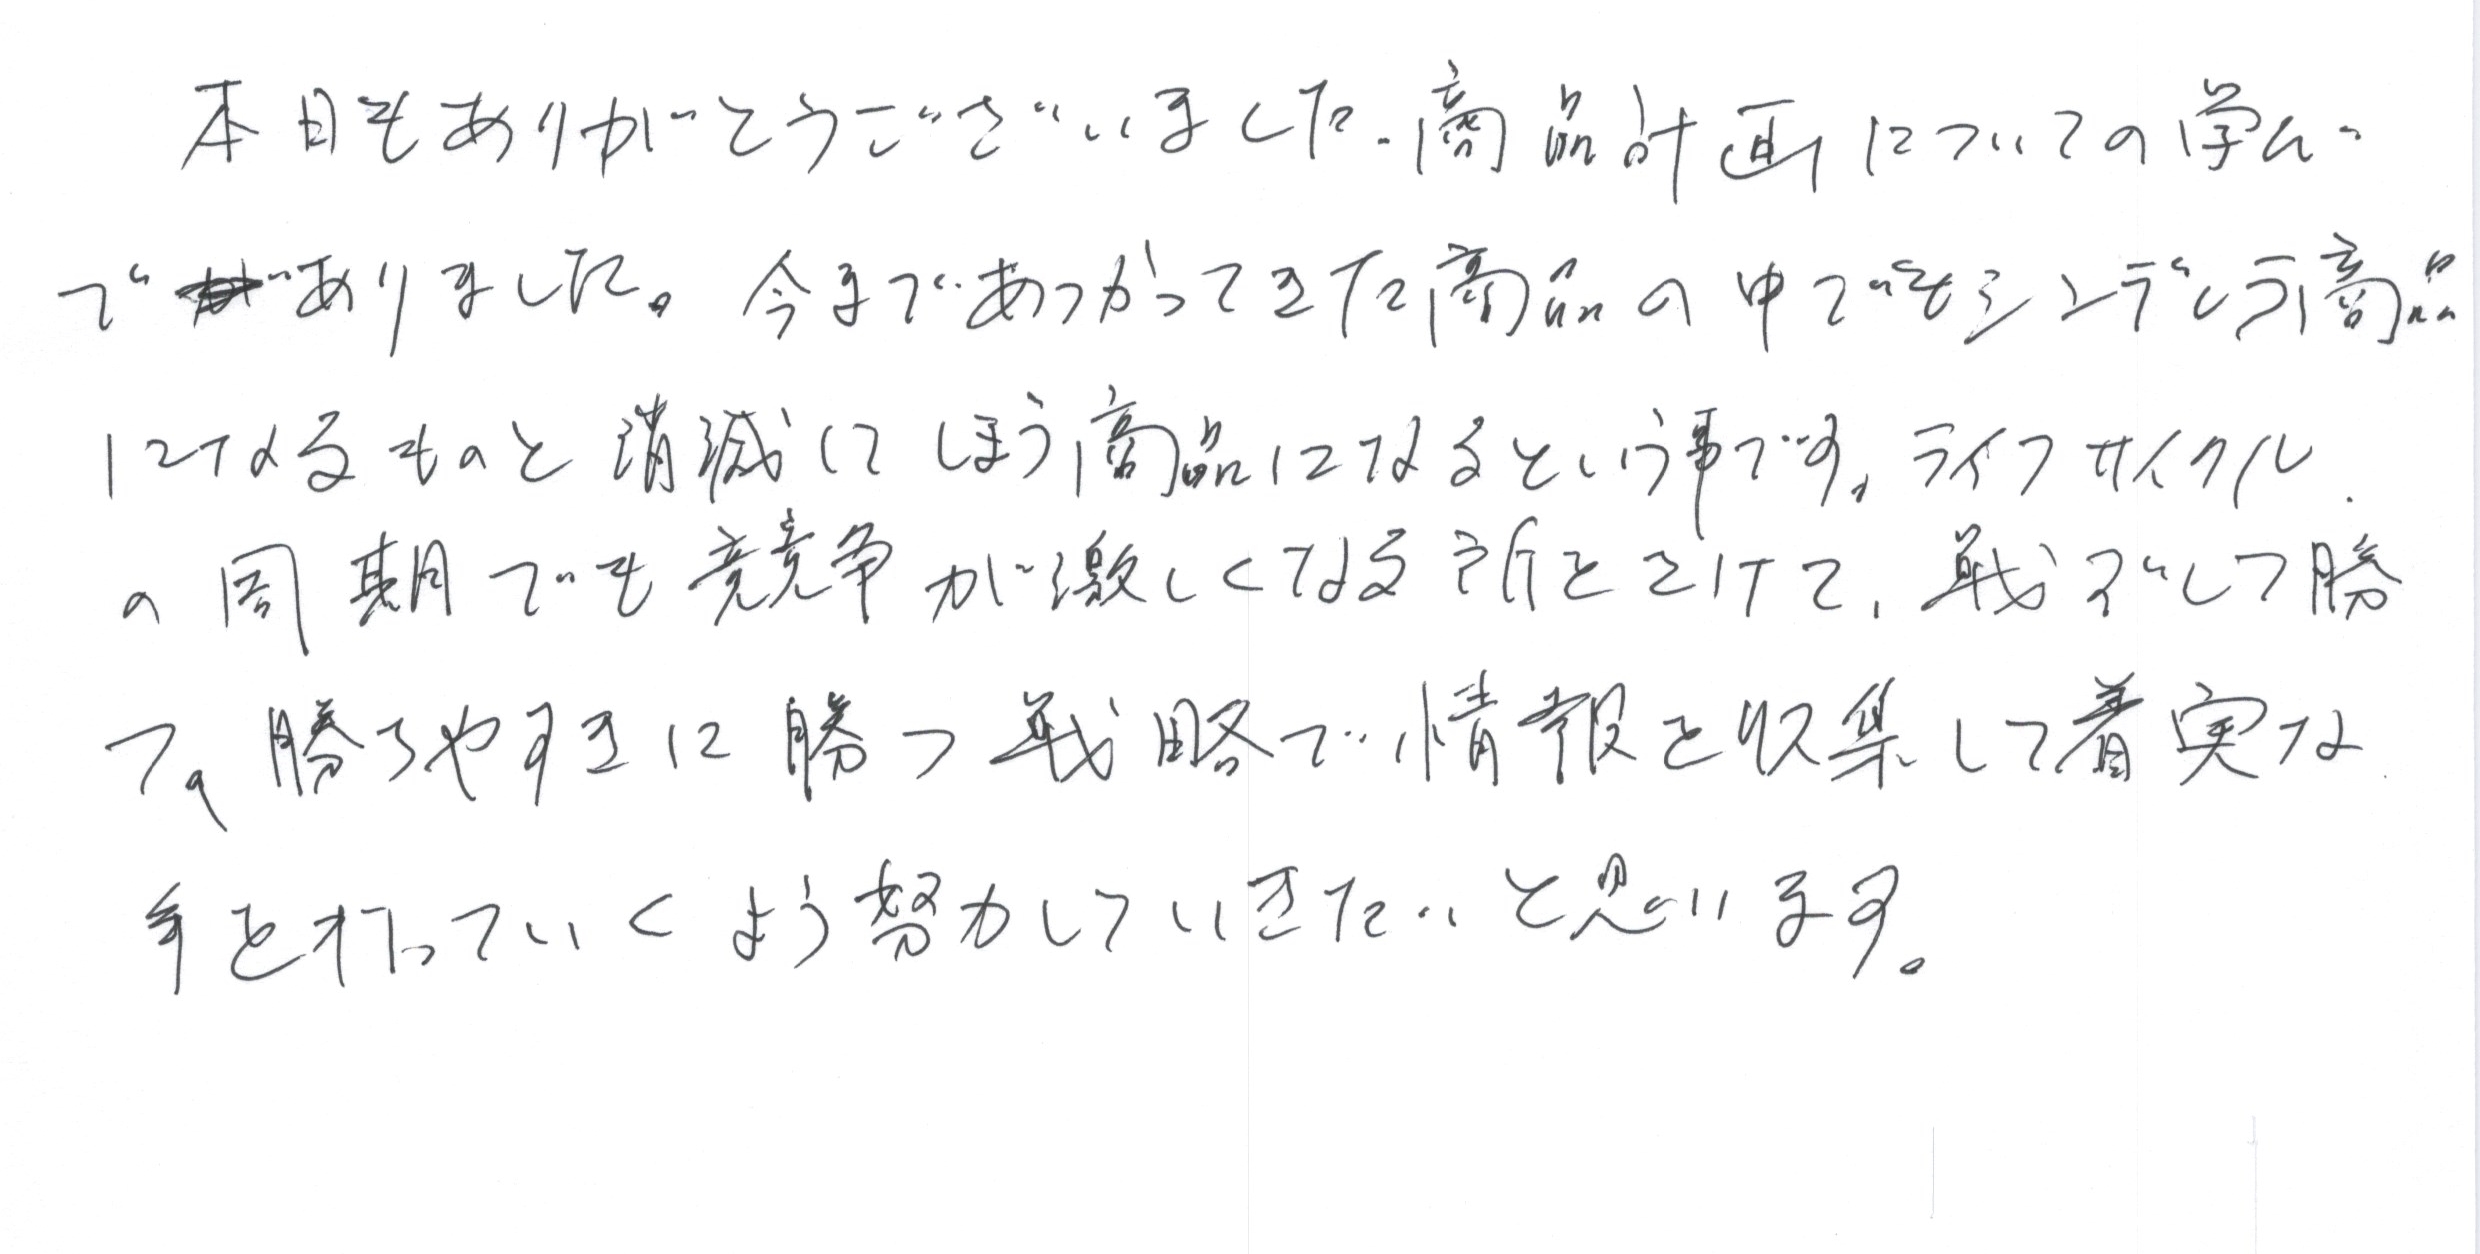 本日もありがとうございました。商品計画についての学び
でありました。今まであつかってきた商品の中でもシンデレラ商品
になるものと消滅してしまう商品になるという事です。ライフサイクル
の周期でも競争が激しくなる所をさけて、戦わずして勝
つ。勝ちやすきに勝つ戦略で情報を収集して着実な
手を打っていくよう努力していきたいと思います。